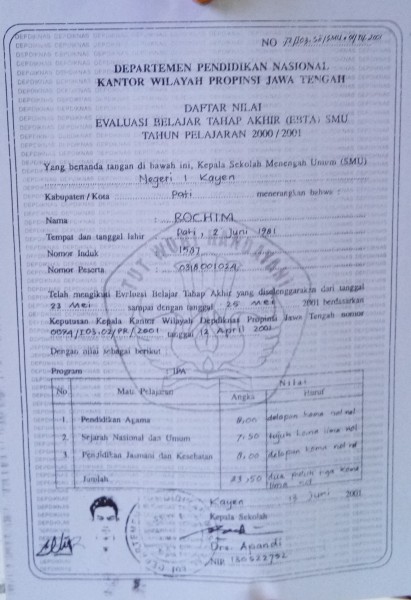 NO
DEPARTEMEN PENDIDIKAN NASIONAL
KANTOR WILAYAH PROPINSI JAWA TENGAH
DAFTAR NILAI
EVALUASI BELAJAR TAHAP AKHIR (EBTA) SMU
TAHUN PELAJARAN 2000/2001
Yang bertanda tangan di bawah ini, Kepala Sekolah Menengah Umum (SMU)
Negeri 1 Kayen
Kabupaten / Kota : Pati menerangkan bahwa :
Nama : ROCHIM
Tempat dan tanggal lahir : Pati, 2 Juni 1981
Nomor Induk
Nomor Peserta
Telah mengikuti Evaluasi Belajar Tahap Akhir yang diselenggarakan dari tanggal
23 Mei sampai dengan tanggal 25 Mei 2001 berdasarkan
Keputusan Kepala Kantor Wilayah Depdiknas Propinsi Jawa Tengah nomor
tanggal 12 April 2001
Dengan nilai sebagai berikut
Program : IPA
No. Mata Pelajaran Nilai
Angka Huruf
1. Pendidikan Agama 8,00 delapan koma nol nol
2. Sejarah Nasional dan Umum 7,50 tujuh koma lima nol
3. Pendidikan Jasmani dan Kesehatan 8,00 delapan koma nol nol
Jumlah 23,50 dua puluh tiga koma
lima nol
Kayen 13 Juni 2001
Kepala Sekolah
Drs. Apandi
NIP 130522792
TUT WURI HANDAYANI